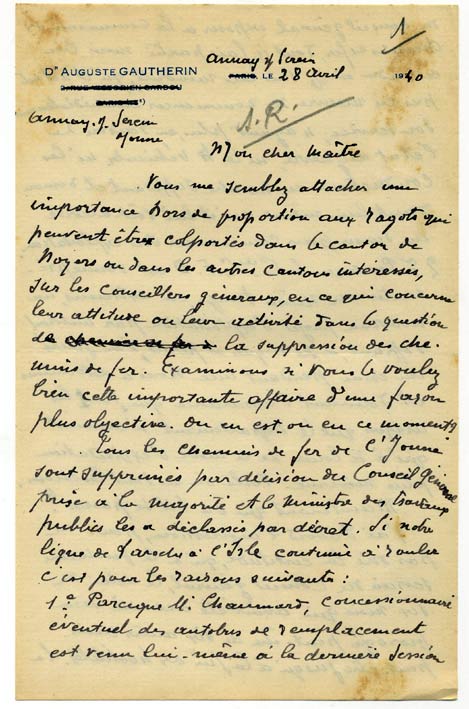 1
Annay s/ Serein
Dr AUGUSTE GAUTHERIN
PARIS, LE 28 Avril 1940
Annay. s. Serein
Yonne
A.R.
Mon cher Maître
Vous me semblez attacher une
importance hors de proportion aux ragots qui
peuvent être colportés dans le canton de
Noyers ou dans les autres cantons intéressés,
sur les conseillers généraux, en ce qui concerne
leur attitude ou leur activité dans la question
de chemin de fer la suppression des che-
mins de fer. Examinons si vous le voulez
bien cette importante affaire d'une façon
plus objective. Ou en est-on en ce moment ?
Tous les chemins de fer de l'Yonne
sont supprimés par décision du Conseil Général
prise à la majorité et le Ministre des travaux
publics les a déclassés par décret. Si notre
ligne de Laroche à l'Isle continue à rouler
c'est pour les raisons suivantes :
1º Parceque M. Chaumard, concessionnaire
éventuel des autobus de remplacement
est venu lui-même à la dernière session